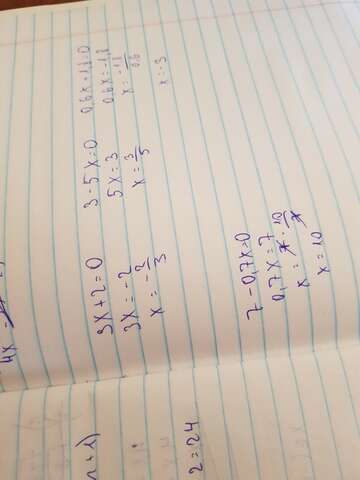 4x =
3x + 2 = 0
3x = -2
x = - 2/3
3 - 5x = 0
5x = 3
x = 3/5
0,6x + 1,8 = 0
0,6x = -1,8
x = - 1,8/0,6
x = -3
7 - 0,7x = 0
0,7x = 7
x = 7 · 10/7
x = 10
2 = 24